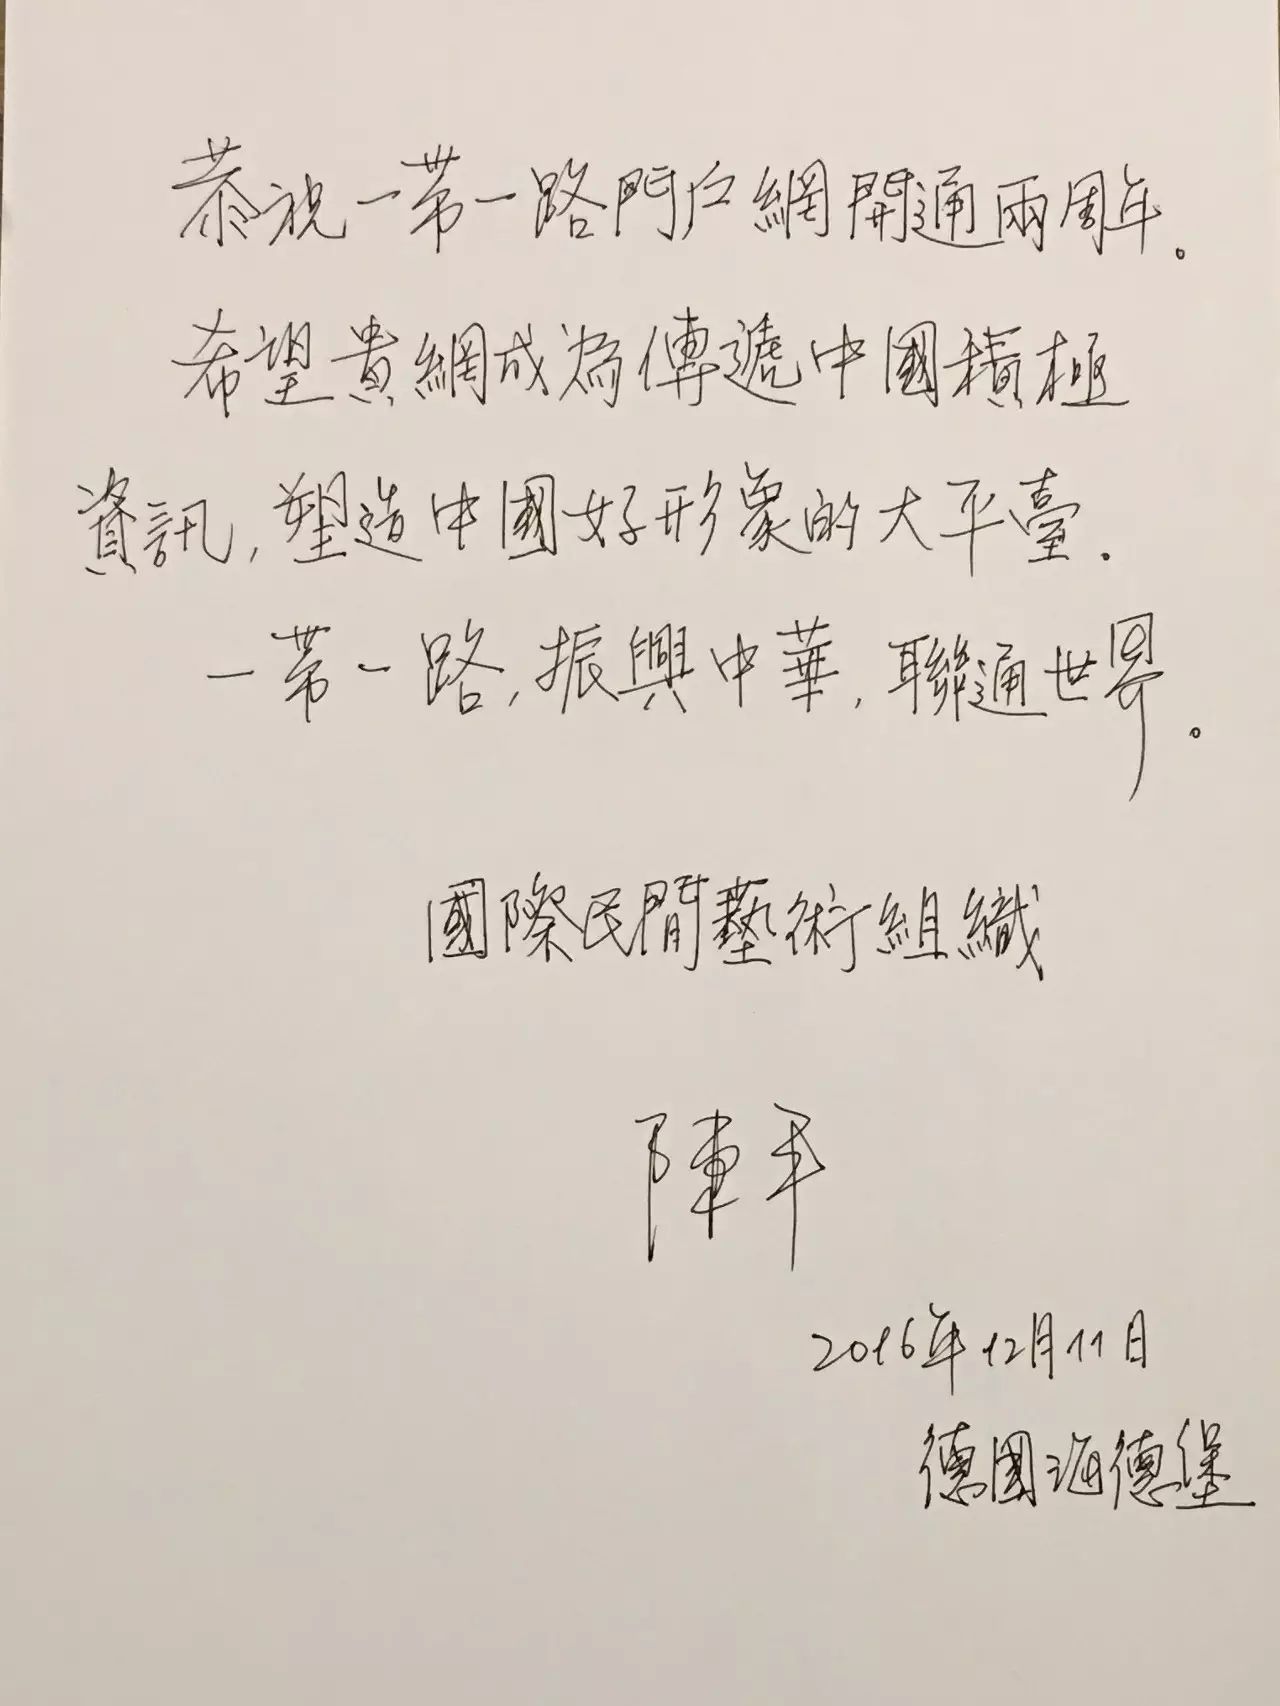 恭祝一带一路門户網開通兩周年。
希望貴網成為傳遞中國積極
資訊,塑造中國好形象的大平臺.
一带一路,振興中華,聯通世界。
國際民間藝術組織
陳平
2016年12月11日
德國海德堡